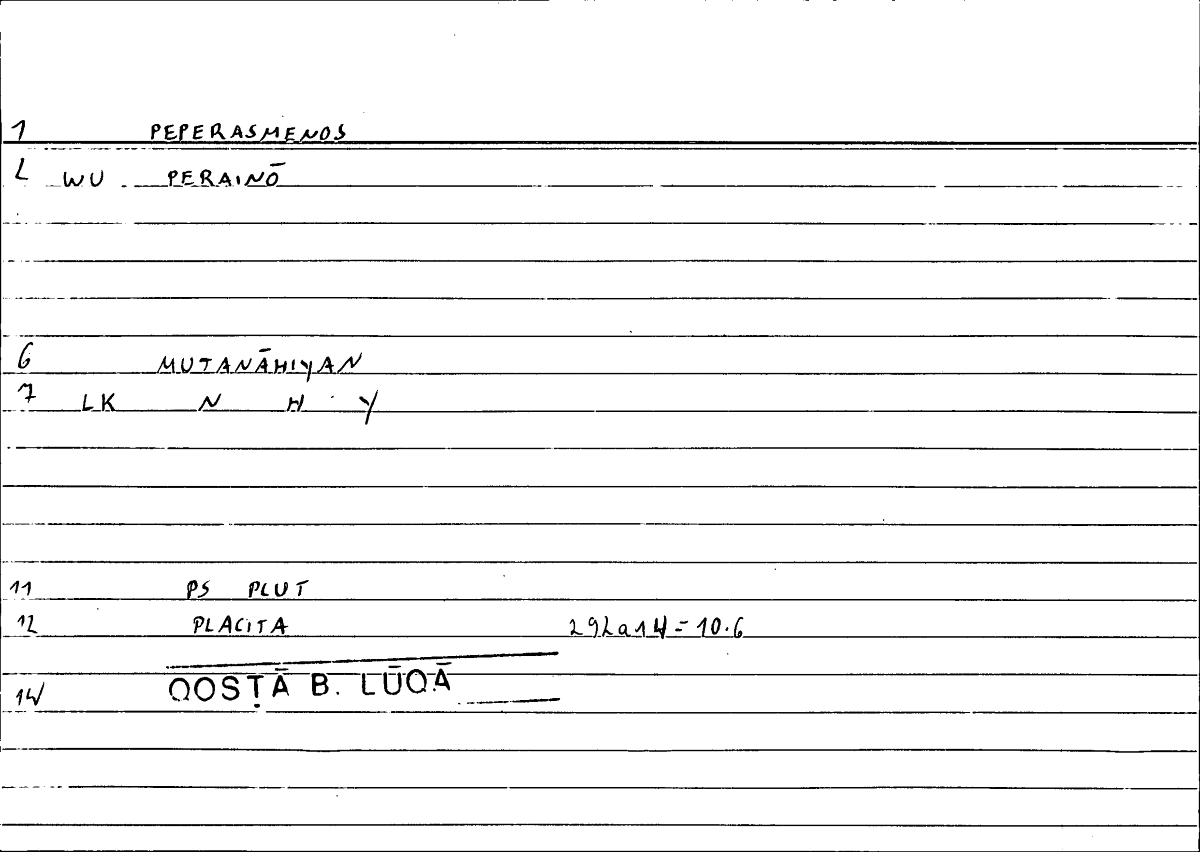 1 PEPERASMENOS
2 WU PERAINŌ
6 MUTANĀHIYAN
7 LK N H Y
11 PS PLUT
12 PLACITA 292a14=10.6
14 QOSṬĀ B. LŪQĀ